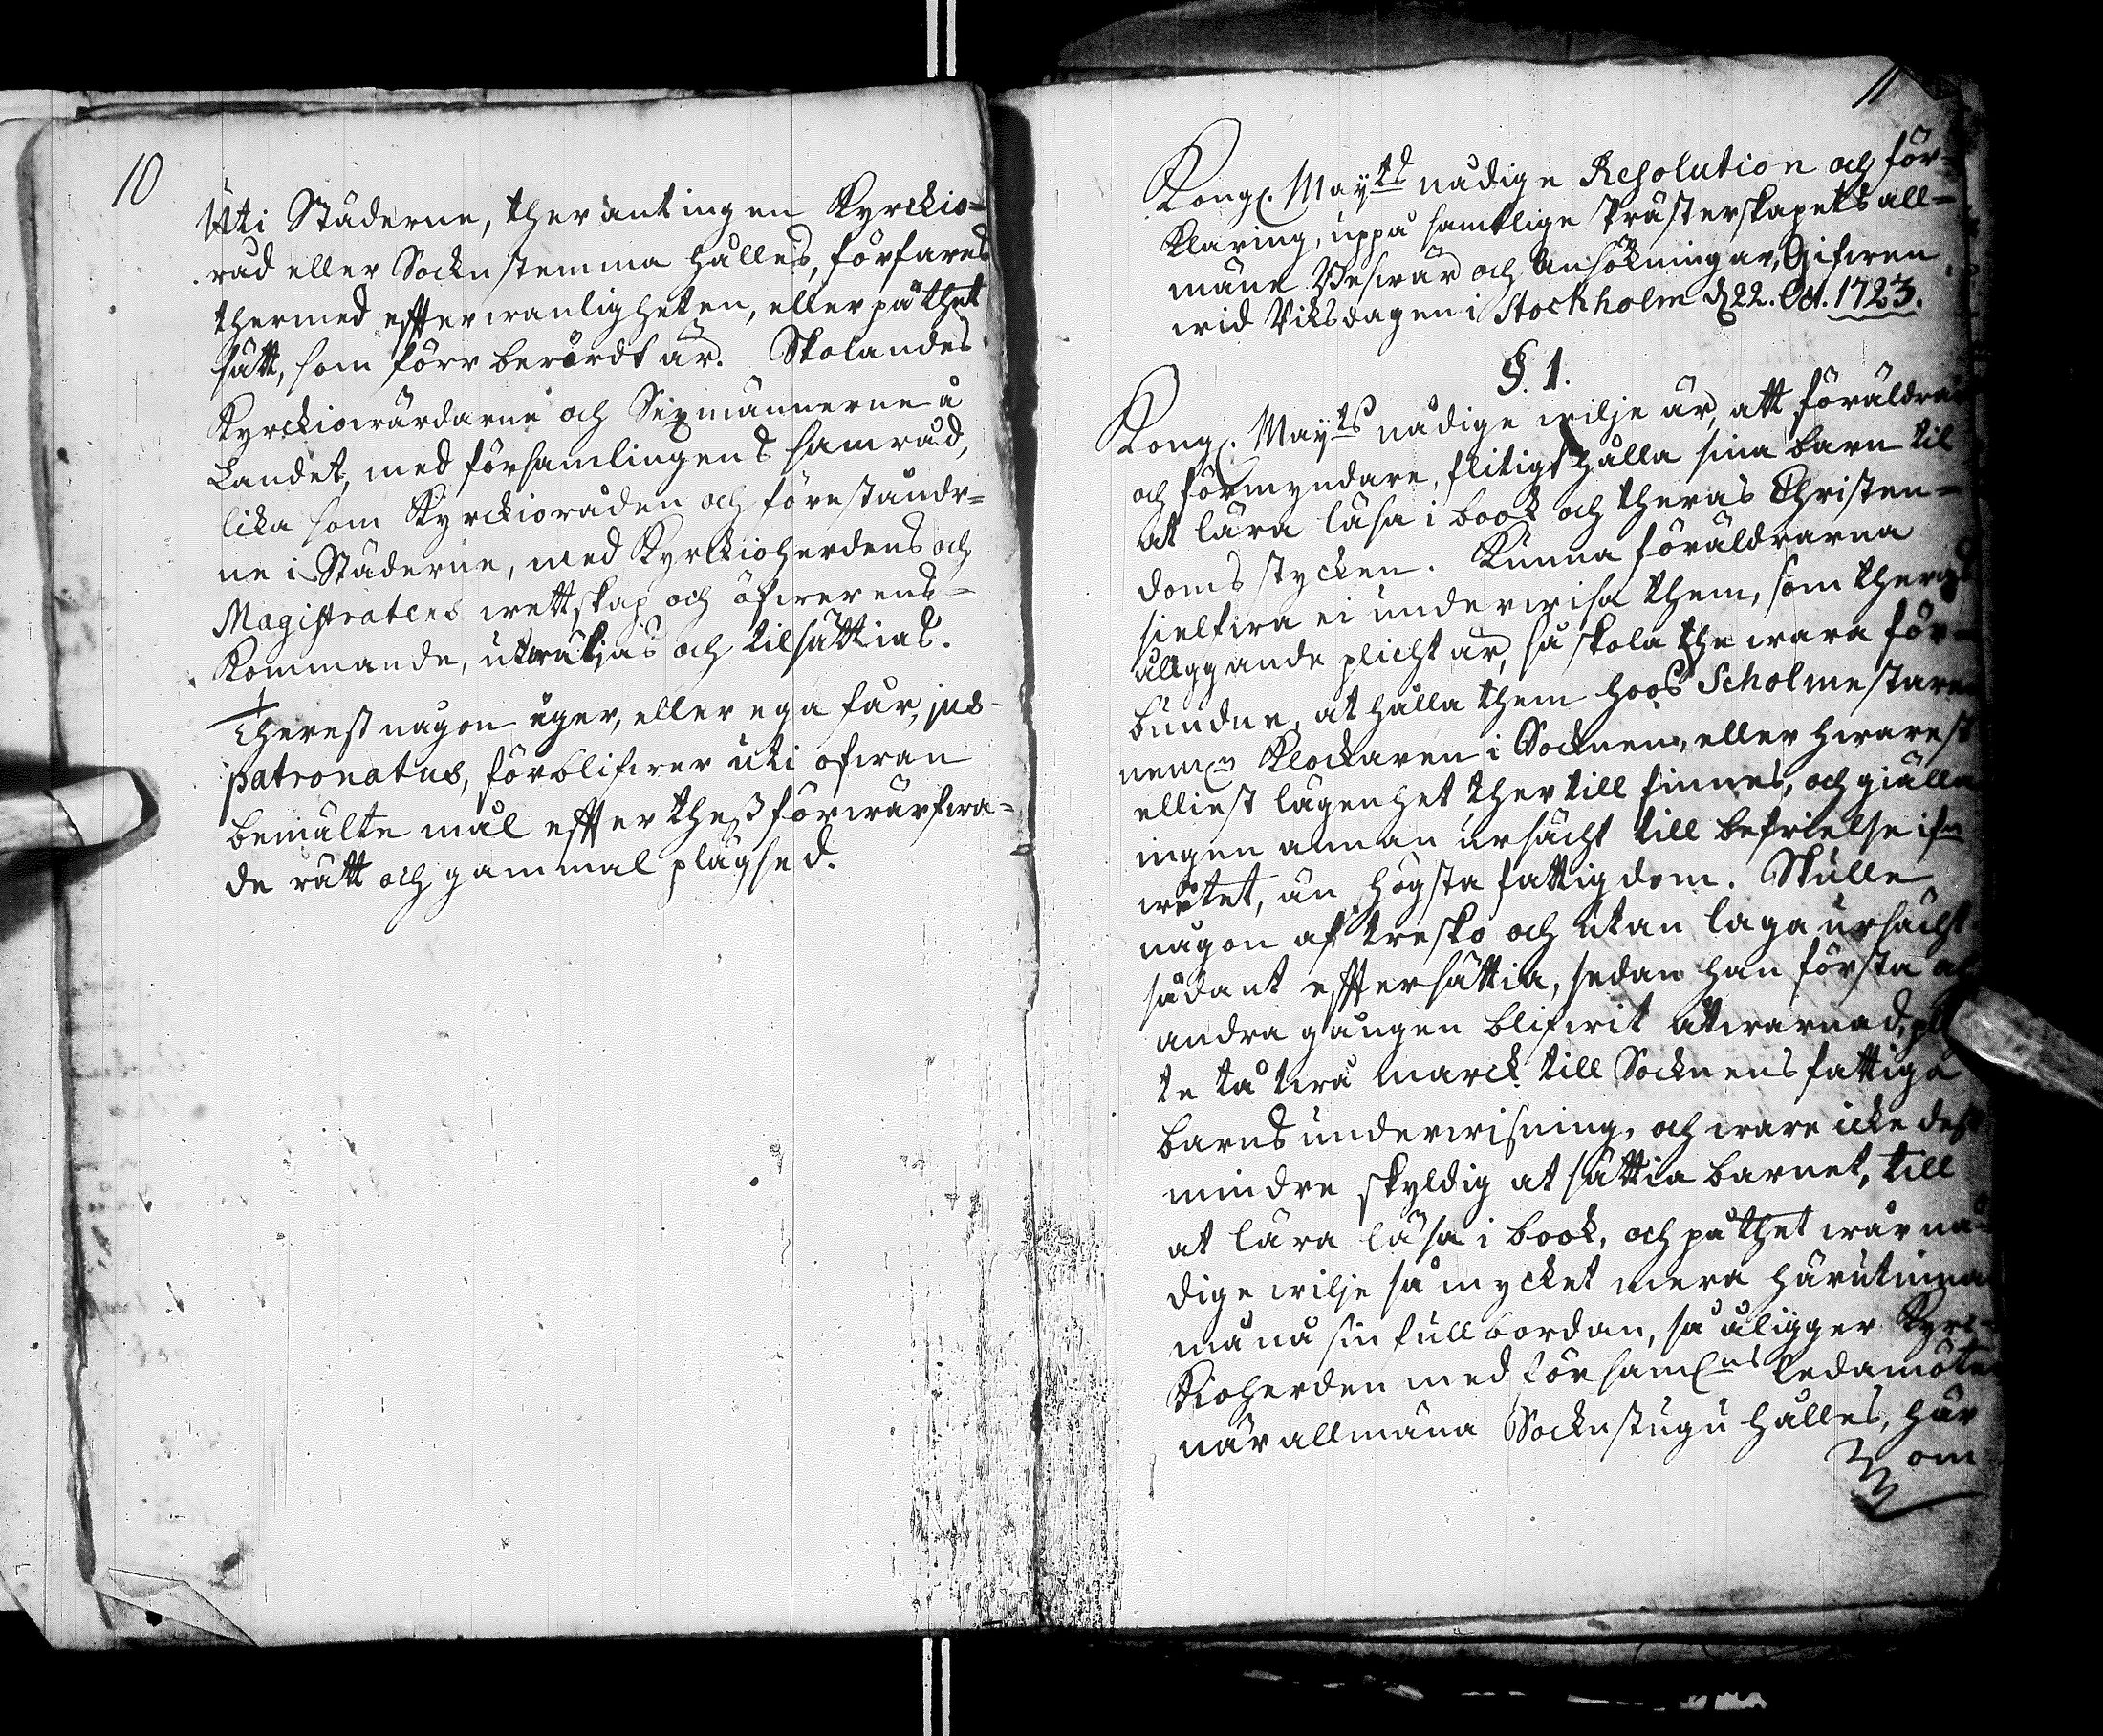 10
Uti Städerne, ther antingen Kyrckio-
råd eller Sockn stemma hålles, förfares
thermed effter wanligheten, eller på thet
sätt, som förr berördt är. Skolandes
Kyrckiowärdarne och Sexmännerne å
Landet, med församlingens samråd,
lika som Kyrckioråden och föreståndr-
ne i Städerne, med Kyrckioherdens och
Magistratens wettskap och öfwerens-
kommande, utwäljas och tilsättias.
Therest någon äger, eller ega får, jus-
patronatus, förblifwer uti ofwan
bemälte mål effter theß förwärfwa-
de rätt och gammal plägsed.
11
Kongl. Mayts nådige Resolution och för-
klaring, uppå samtlige Prästerskapets all-
mäne Beswär och Ansökningar, Gifwen
wid Riksdagen i Stockholm d 22. Oct. 1723.
§. 1.
Kongl. Mayts nådige wilje är, att föräldrar
och förmyndare, flitigt hålla sina barn til
at lära läsa i book och theras Christen-
doms stycken. Kunna föräldrarna
sielfwa ei underwisa them, som theras
åliggande plicht är, så skola the wara för-
bundne, at hålla them hoos Scholmestaren
neml Klockaren i Socknen, eller hwarest
elliest lägenhet ther till finnes, och giälle
ingen annan ursächt till befrielse
wetet, än högsta fattigdom. Skulle
någon af tresko och utan laga ursächt
sådant effter sättia, sedan han första och
andra gången blifwit åtwarnad,
te tå twå marck till Socknens fattiga
barns underwisning, och ware icke dest
mindre skyldig at sättia barnet, till
at lära läsa i book, och på thet wår nå-
dige wilje så mycket mera härutinnan
må nå sin fullbordan, så åligger Kyrc-
kioherden med församlns ledamöter
när allmäna Socknstugu hålles, här
om